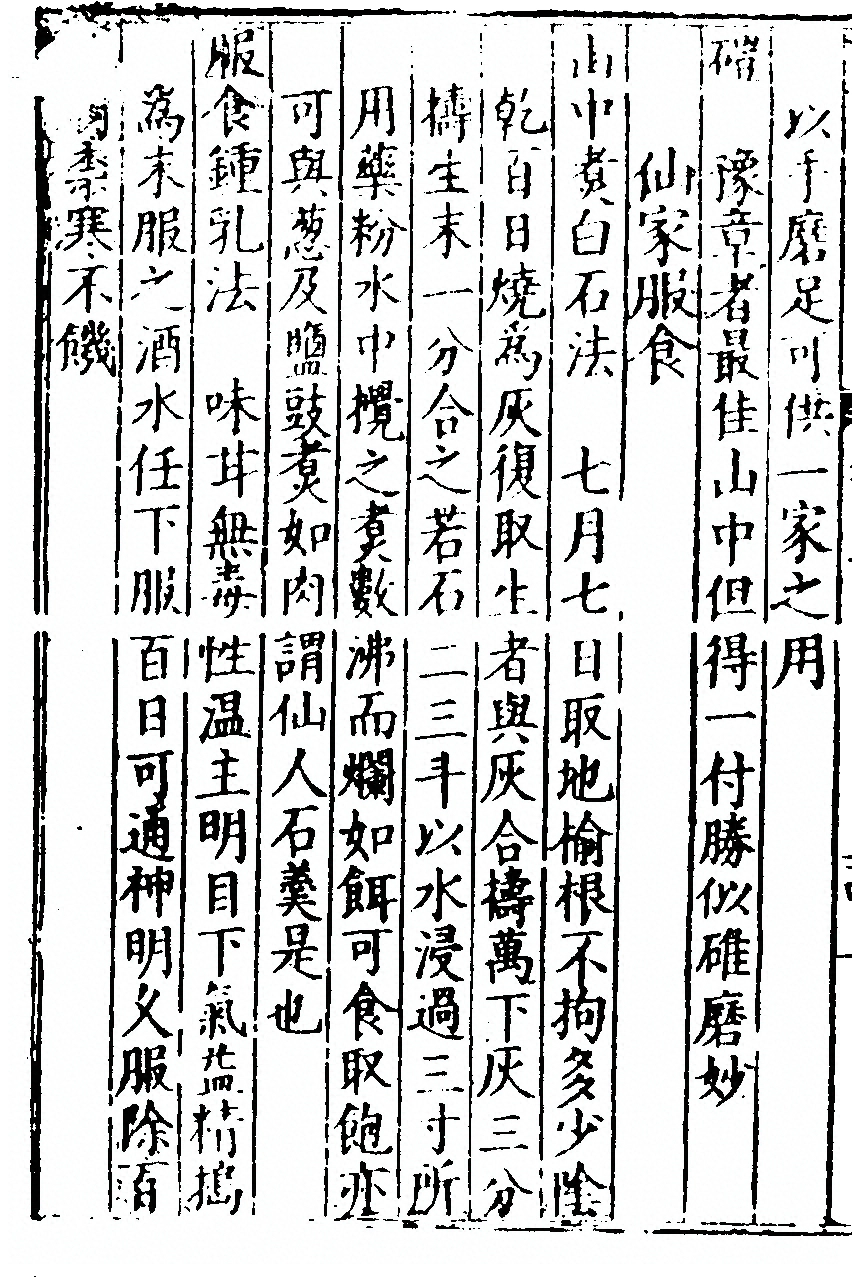 以手磨足可供一家之用
磑　豫章者最佳山中但得一付勝似碓磨妙
仙家服食
山中煮白石法　七月七日取地榆根不拘多少陰
乾百日燒為灰復取生者與灰合擣萬下灰三分
擣生末一分合之若石二三斗以水浸過三寸所
用藥粉水中攪之煮數沸而爛如餌可食取飽亦
可與葱及鹽豉煮如肉謂仙人石羹是也
服食鍾乳法　味甘無毒性温主明目下氣益精搗
為末服之酒水任下服百日可通神明久服除百
寒不饑